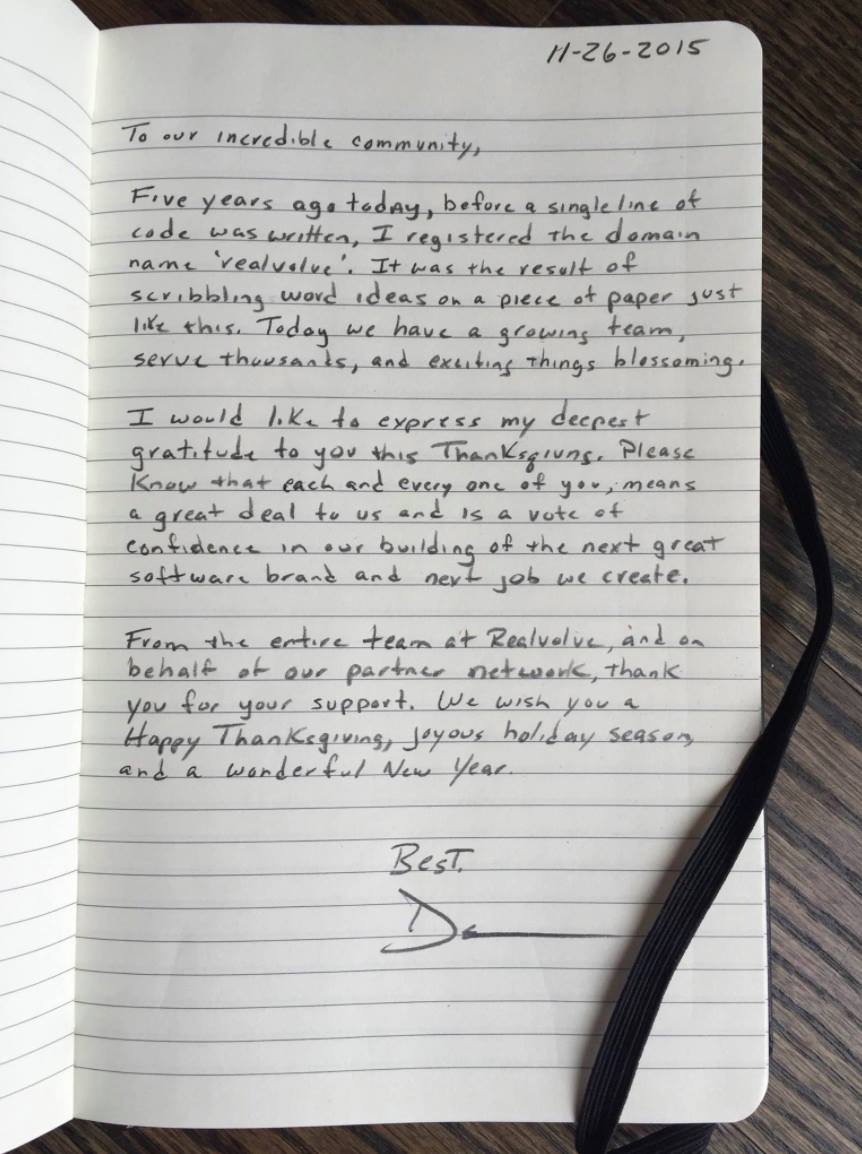 11-26-2015
To our incredible community,
Five years ago today, before a single line of
code was written, I registered the domain
name 'realvolve'. It was the result of
scribbling word ideas on a piece of paper just
like this. Today we have a growing team,
serve thousands, and exciting things blossoming.
I would like to express my deepest
gratitude to you this Thanksgiving. Please
know that each and every one of you, means
a great deal to us and is a vote of
confidence in our building of the next great
software brand and next job we create.
From the entire team at Realvolve, and on
behalf of our partner network, thank
you for your support. We wish you a
Happy Thanksgiving, joyous holiday season,
and a wonderful New Year.
Best.